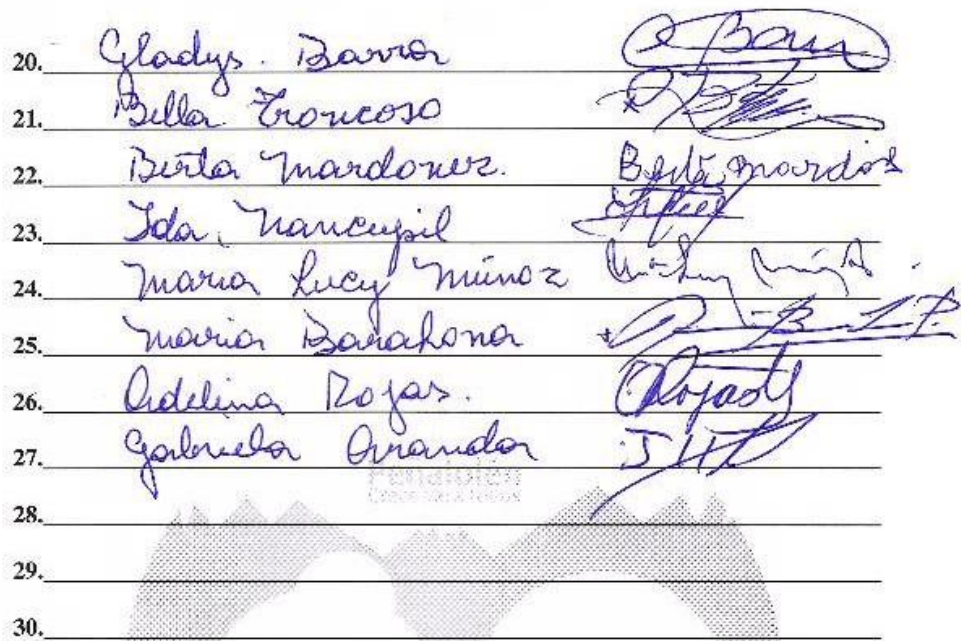 20. Gladys. Barra
21. Bella Troncoso
22. Berta Mardonez. Berta Mardones
23. Ida, Nancupil
24. Maria Lucy Muñoz
25. Maria Barahona
26. Adelina Rojas. ORojas
27. Gabriela Aranda
Peñalolén
28.
29.
30.